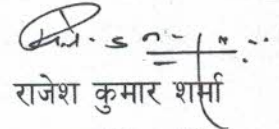 राजेश कुमार शर्मा